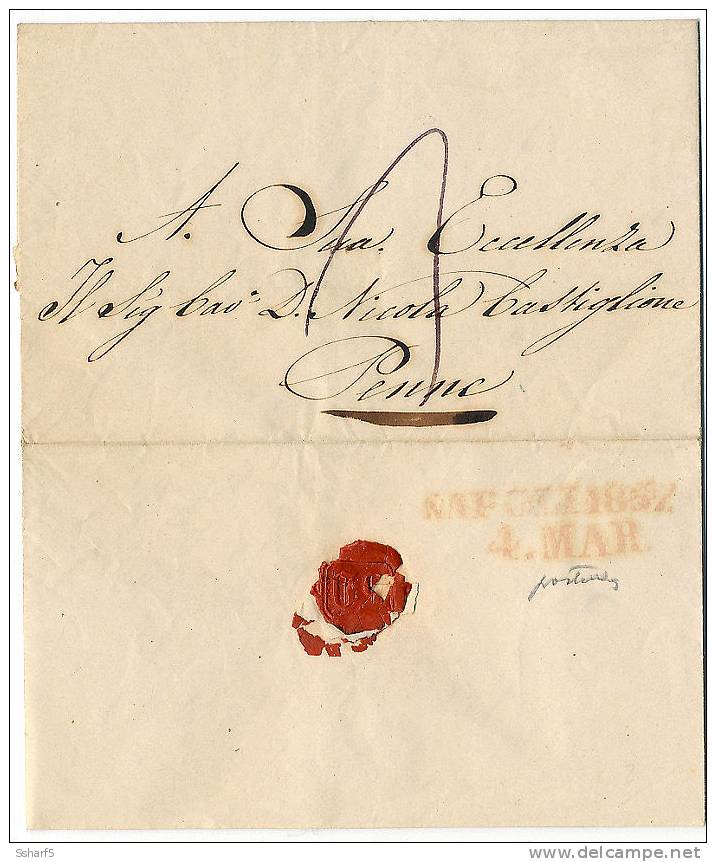 A. Sua. Eccellenza
Il Sig Cavʳ D. Nicola Castiglione
Penne
NAPOLI 1857
4. MAR
Scharf5
www.delcampe.net